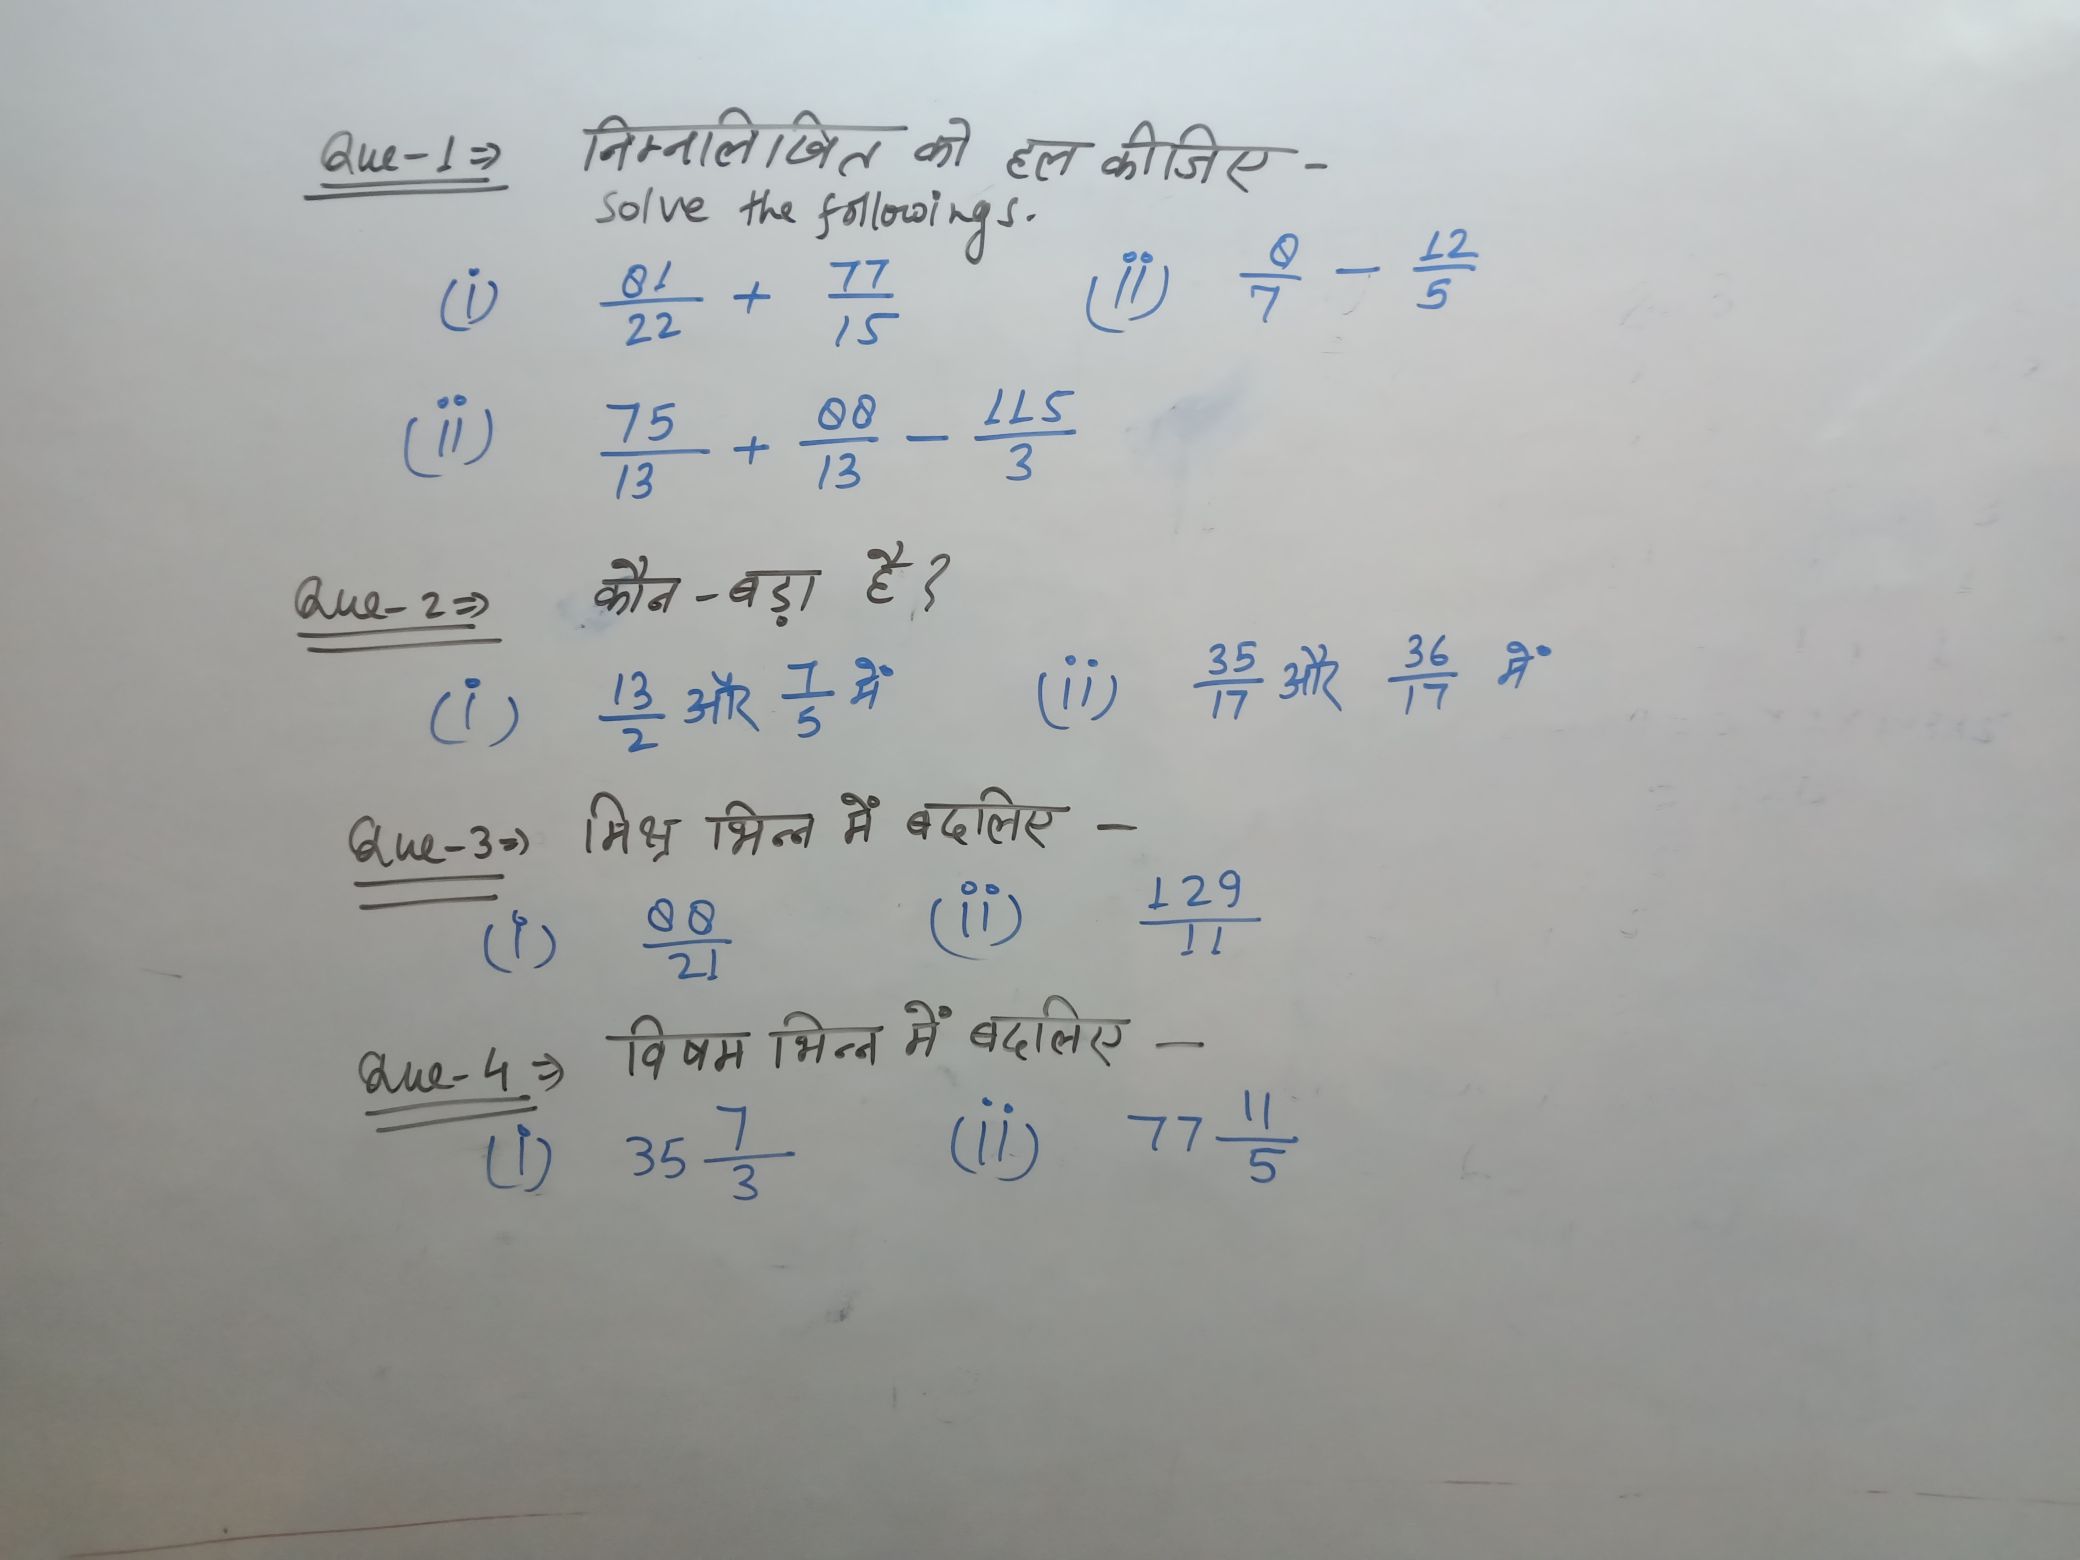 Que-1⇒ निम्नलिखित को हल कीजिए -
Solve the followings.
(i) 81/22 + 77/15 (ii) 8/7 - 12/5
(ii) 75/13 + 88/13 - 115/3
Que-2⇒ कौन-बड़ा है?
(i) 13/2 और 7/5 में (ii) 35/17 और 36/17 में
Que-3⇒ मिश्र भिन्न में बदलिए -
(i) 88/21 (ii) 129/11
Que-4⇒ विषम भिन्न में बदलिए -
(i) 35 7/3 (ii) 77 11/5